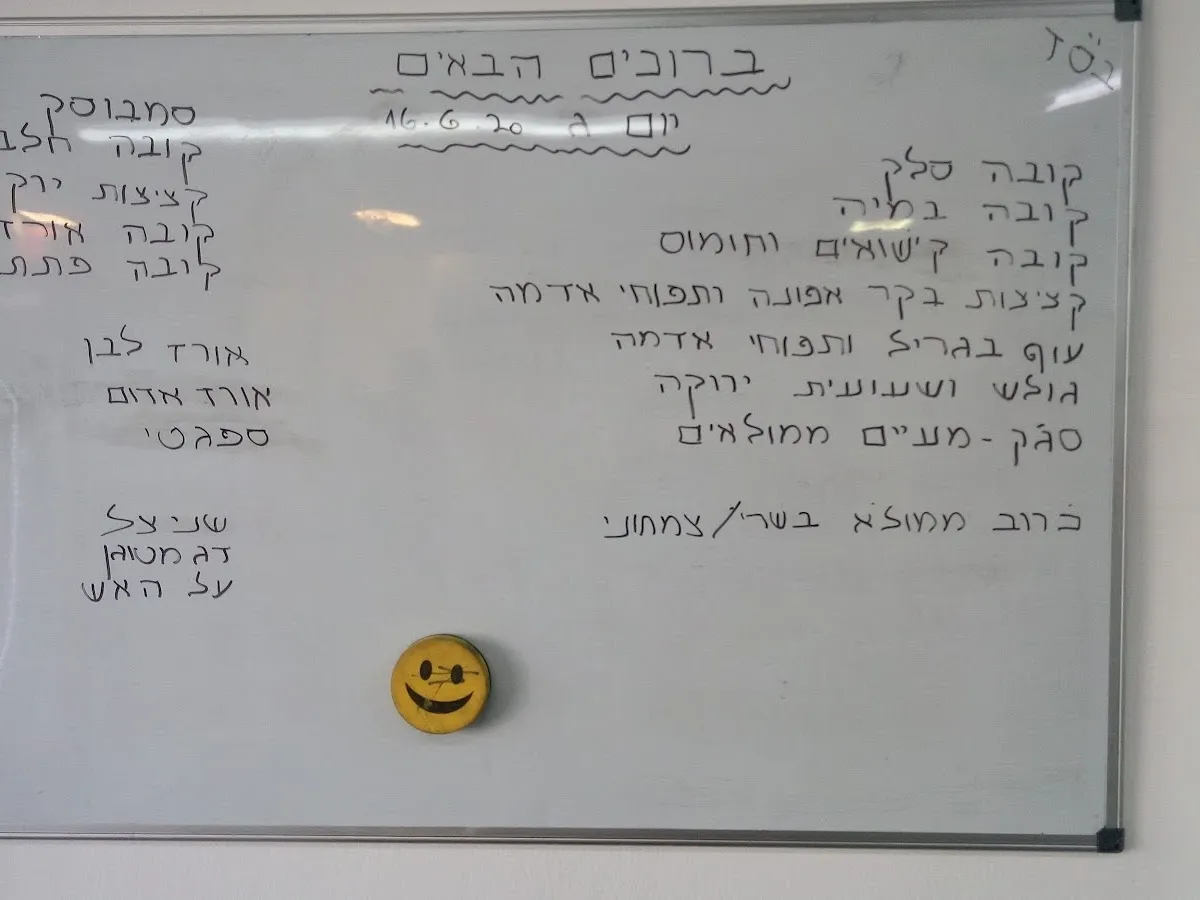 ברוכים הבאים
יום ג 16.6.20
קובה סלק
קובה במיה
קובה קישואים וחומוס
קציצות בקר אפונה ותפוחי אדמה
עוף בגריל ותפוחי אדמה
גולש ושעועית ירוקה
סג'ק - מעיים ממולאים
כרוב ממולא בשרי/צמחוני
סמבוסק
קובה חלב
קציצות ירק
קובה אורז
קובה פתת
אורז לבן
אורז אדום
ספגטי
שניצל
דג מטוגן
על האש